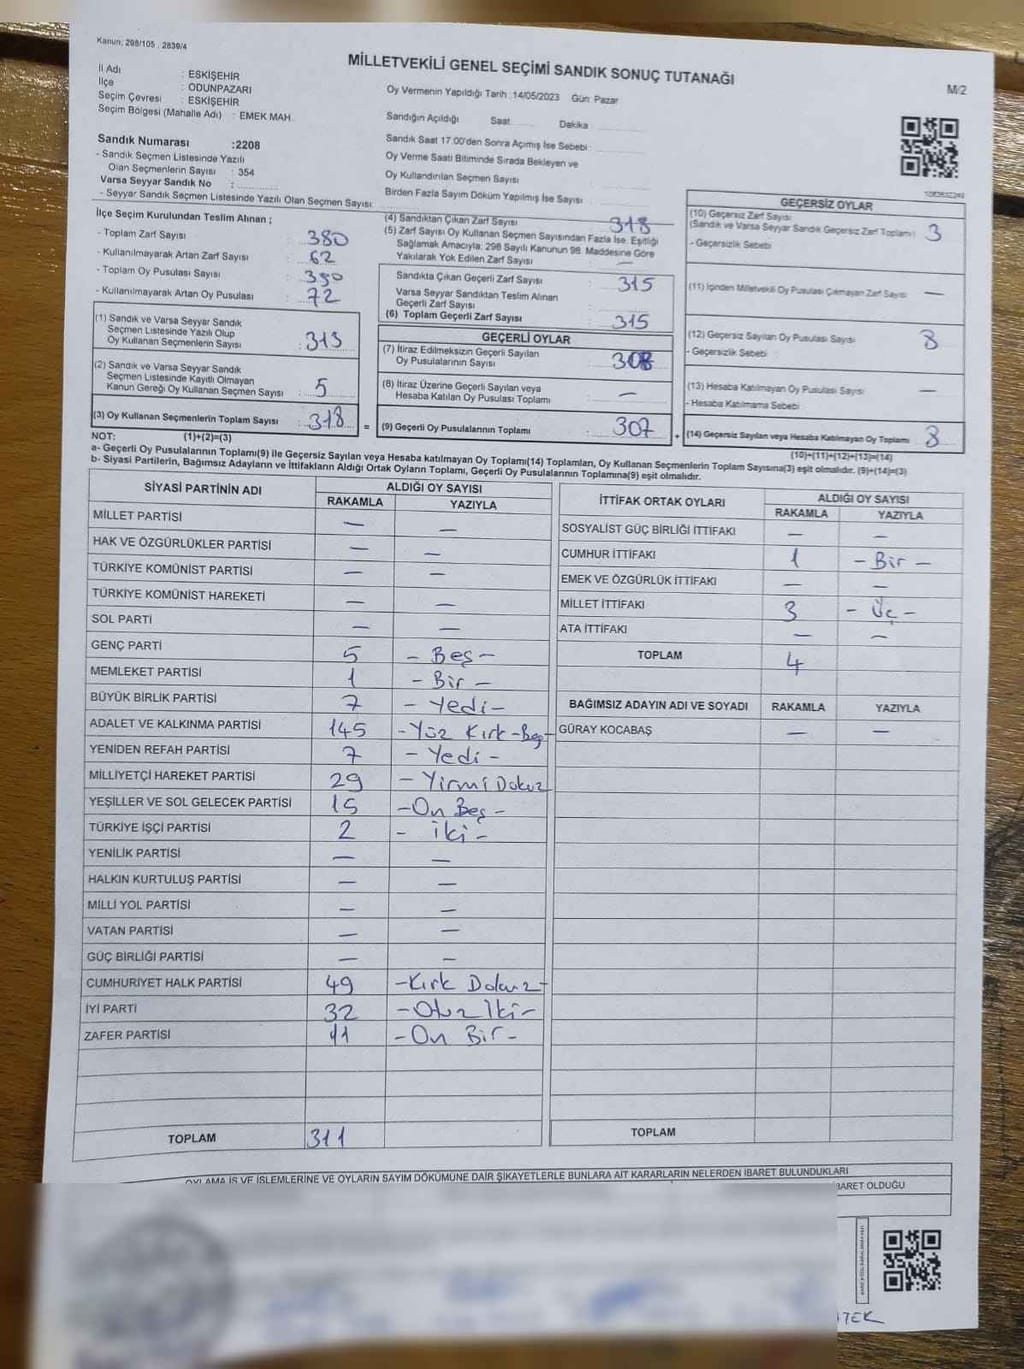 Kanun: 298/105 . 2839/4
MİLLETVEKİLİ GENEL SEÇİMİ SANDIK SONUÇ TUTANAĞI
M/2
İl Adı : ESKİŞEHİR
İlçe : ODUNPAZARI
Seçim Çevresi : ESKİŞEHİR
Seçim Bölgesi (Mahalle Adı) : EMEK MAH.
Sandık Numarası :2208
- Sandık Seçmen Listesinde Yazılı
Olan Seçmenlerin Sayısı : 354
Varsa Seyyar Sandık No :
- Seyyar Sandık Seçmen Listesinde Yazılı Olan Seçmen Sayısı:
Oy Vermenin Yapıldığı Tarih :14/05/2023 Gün: Pazar
Sandığın Açıldığı Saat Dakika
Sandık Saat 17.00'den Sonra Açımış İse Sebebi :
Oy Verme Saati Bitiminde Sırada Bekleyen ve
Oy Kullandırılan Seçmen Sayısı :
Birden Fazla Sayım Döküm Yapılmış İse Sayısı :
İlçe Seçim Kurulundan Teslim Alınan ;
- Toplam Zarf Sayısı : 380
- Kullanılmayarak Artan Zarf Sayısı : 62
- Toplam Oy Pusulası Sayısı : 380
- Kullanılmayarak Artan Oy Pusulası : 72
(1) Sandık ve Varsa Seyyar Sandık
Seçmen Listesinde Yazılı Olup
Oy Kullanan Seçmenlerin Sayısı : 313
(2) Sandık ve Varsa Seyyar Sandık
Seçmen Listesinde Kayıtlı Olmayan
Kanun Gereği Oy Kullanan Seçmen Sayısı : 5
(3) Oy Kullanan Seçmenlerin Toplam Sayısı : 318 =
(4) Sandıktan Çıkan Zarf Sayısı : 318
(5) Zarf Sayısı Oy Kullanan Seçmen Sayısından Fazla İse, Eşitliği
Sağlamak Amacıyla; 298 Sayılı Kanunun 98. Maddesine Göre
Yakılarak Yok Edilen Zarf Sayısı : —
Sandıkta Çıkan Geçerli Zarf Sayısı : 315
Varsa Seyyar Sandıktan Teslim Alınan
Geçerli Zarf Sayısı :
(6) Toplam Geçerli Zarf Sayısı : 315
GEÇERLİ OYLAR
(7) İtiraz Edilmeksizin Geçerli Sayılan
Oy Pusulalarının Sayısı :
(8) İtiraz Üzerine Geçerli Sayılan veya
Hesaba Katılan Oy Pusulası Toplamı : —
(9) Geçerli Oy Pusulalarının Toplamı : 307 +
GEÇERSİZ OYLAR
(10) Geçersiz Zarf Sayısı
(Sandık ve Varsa Seyyar Sandık Geçersiz Zarf Toplamı) : 3
- Geçersizlik Sebebi
(11) İçinden Milletvekili Oy Pusulası Çıkmayan Zarf Sayısı : —
(12) Geçersiz Sayılan Oy Pusulası Sayısı : 8
- Geçersizlik Sebebi
(13) Hesaba Katılmayan Oy Pusulası Sayısı : —
- Hesaba Katılmama Sebebi
(14) Geçersiz Sayılan veya Hesaba Katılmayan Oy Toplamı : 8
NOT: (1)+(2)=(3)
(10)+(11)+(12)+(13)=(14)
a- Geçerli Oy Pusulalarının Toplamı(9) ile Geçersiz Sayılan veya Hesaba katılmayan Oy Toplamı(14) Toplamları, Oy Kullanan Seçmenlerin Toplam Sayısına(3) eşit olmalıdır. (9)+(14)=(3)
b- Siyasi Partilerin, Bağımsız Adayların ve İttifakların Aldığı Ortak Oyların Toplamı, Geçerli Oy Pusulalarının Toplamına(9) eşit olmalıdır.
SİYASİ PARTİNİN ADI ALDIĞI OY SAYISI
RAKAMLA YAZIYLA
MİLLET PARTİSİ — —
HAK VE ÖZGÜRLÜKLER PARTİSİ — —
TÜRKİYE KOMÜNİST PARTİSİ — —
TÜRKİYE KOMÜNİST HAREKETİ — —
SOL PARTİ — —
GENÇ PARTİ 5 - Beş -
MEMLEKET PARTİSİ 1 - Bir -
BÜYÜK BİRLİK PARTİSİ 7 - Yedi -
ADALET VE KALKINMA PARTİSİ 145 - Yüz Kırk - Beş -
YENİDEN REFAH PARTİSİ 7 - Yedi -
MİLLİYETÇİ HAREKET PARTİSİ 29 - Yirmi Dokuz
YEŞİLLER VE SOL GELECEK PARTİSİ 15 - On Beş -
TÜRKİYE İŞÇİ PARTİSİ 2 - İki -
YENİLİK PARTİSİ — —
HALKIN KURTULUŞ PARTİSİ — —
MİLLİ YOL PARTİSİ — —
VATAN PARTİSİ — —
GÜÇ BİRLİĞİ PARTİSİ — —
CUMHURİYET HALK PARTİSİ 49 - Kırk Dokuz -
İYİ PARTİ 32 - Otuz İki -
ZAFER PARTİSİ 11 - On Bir -
TOPLAM 311
İTTİFAK ORTAK OYLARI ALDIĞI OY SAYISI
RAKAMLA YAZIYLA
SOSYALİST GÜÇ BİRLİĞİ İTTİFAKI — —
CUMHUR İTTİFAKI 1 - Bir -
EMEK VE ÖZGÜRLÜK İTTİFAKI — —
MİLLET İTTİFAKI 3 - Üç -
ATA İTTİFAKI — —
TOPLAM 4
BAĞIMSIZ ADAYIN ADI VE SOYADI RAKAMLA YAZIYLA
GÜRAY KOCABAŞ — —
TOPLAM
OYLAMA İŞ VE İŞLEMLERİNE VE OYLARIN SAYIM DÖKÜMÜNE DAİR ŞİKAYETLERLE BUNLARA AİT KARARLARIN NELERDEN İBARET BULUNDUKLARI
BARET OLDUĞU